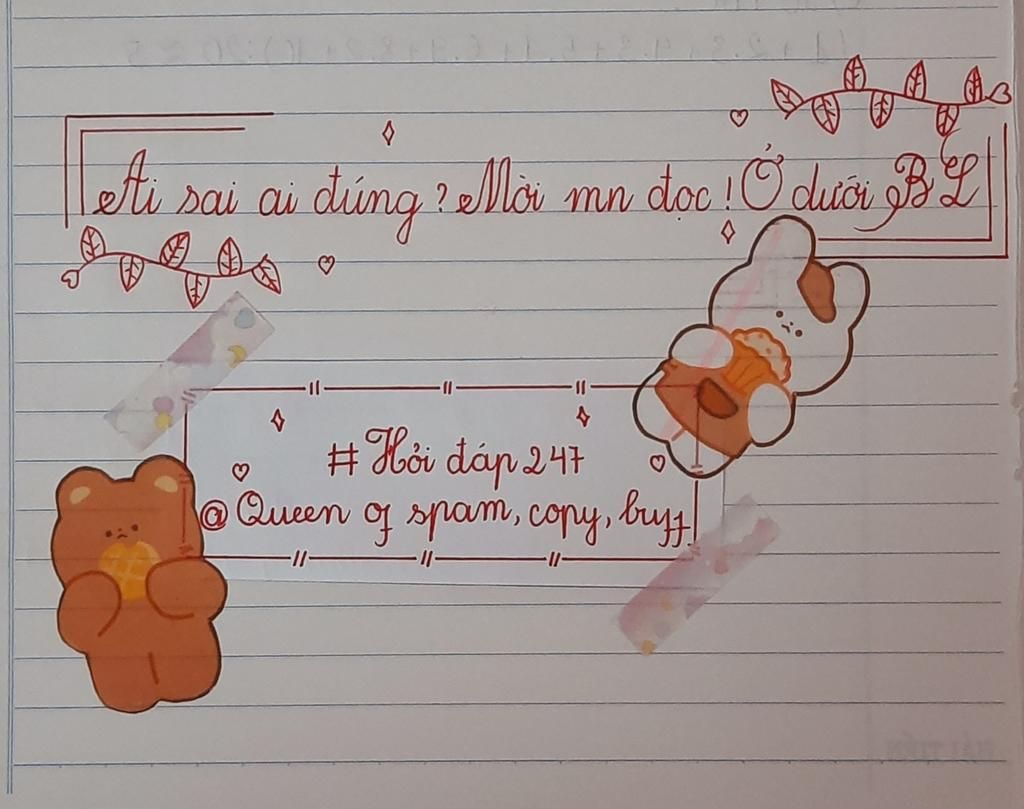 Ai sai ai đúng? Mời mn đọc! Ở dưới BL
# Hỏi đáp 247
@ Queen of spam, copy, buff